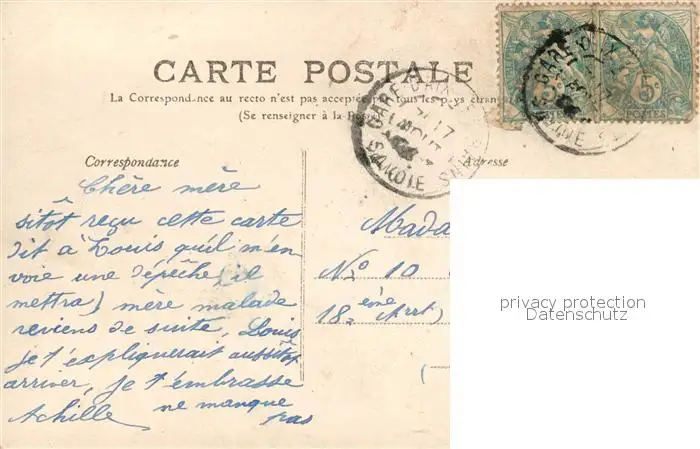 CARTE POSTALE
La Correspondance au recto n'est pas acceptée par tous les pays étran
(Se renseigner à la Poste)
Correspondance
Adresse
Chère mère
sitôt reçu cette carte
dit à Louis qu'il m'en
voie une dépêche (il
mettra) mère malade
reviens de suite, Louis
je t'expliquerait aussitôt
arriver, je t'embrasse
Achille ne manque
pas
Mada
No 10
18 ème Arrt
privacy protection
Datenschutz
GARE D'AIX
SAVOIE
5c
POSTES